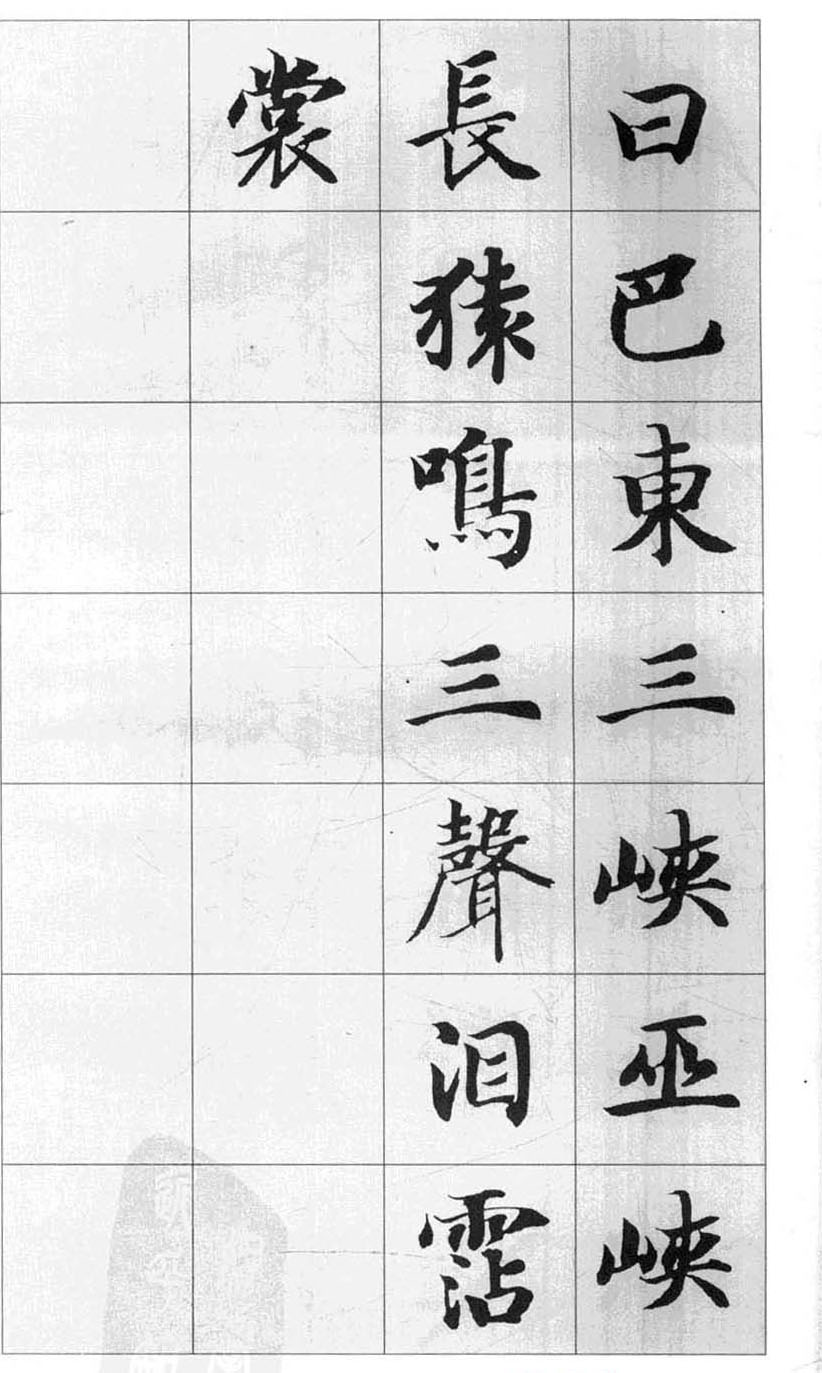 曰巴東三峽巫峽
長猿鳴三聲泪霑
裳